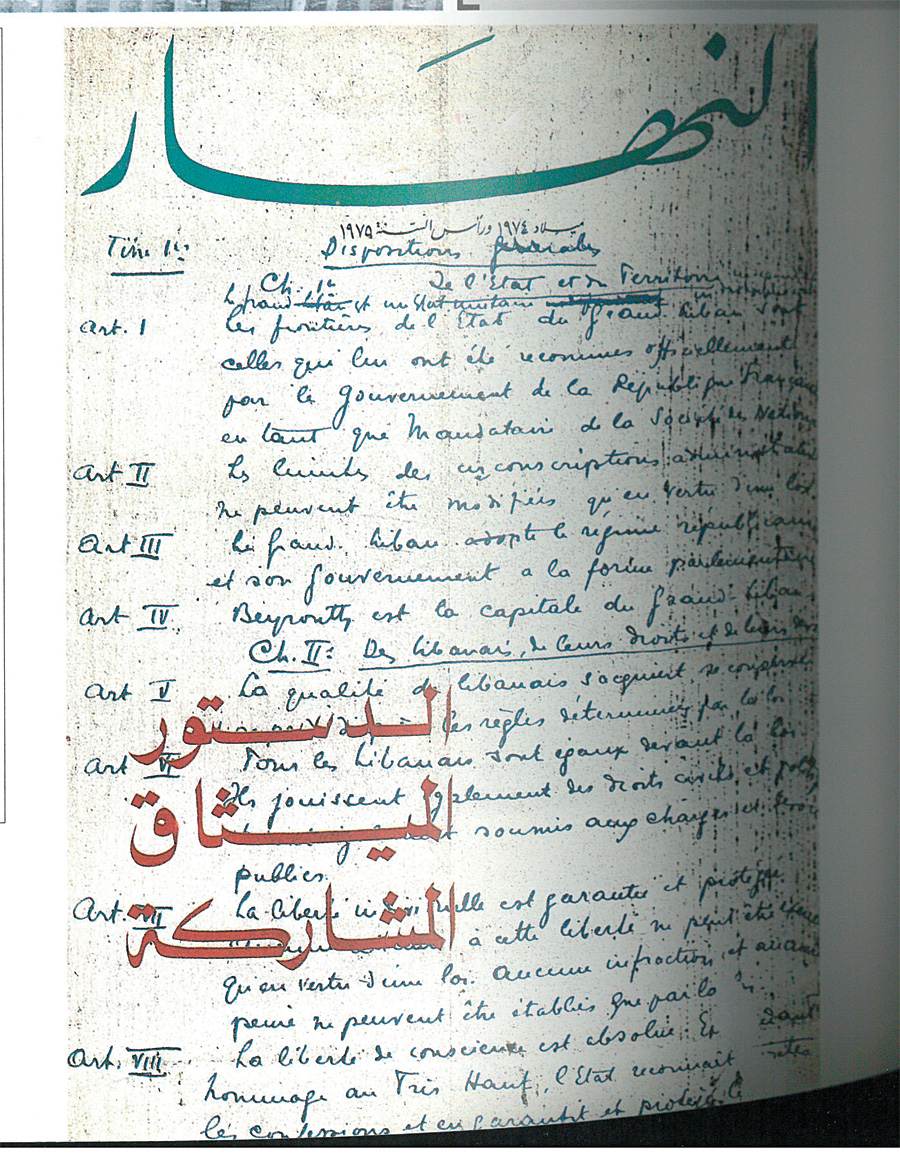 النهار
ميلاد ١٩٧٤ ورأس السنة ١٩٧٥
Titre 1er Dispositions générales
Ch. 1er De l'Etat et du Territoire
le grand liban est un Etat unitaire
Art. I Les frontières de l'Etat du Grand Liban sont
celles qui lui ont été reconnues officiellement
par le Gouvernement de la République Française
en tant que Mandataire de la Société des Nations
Art II Les limites des circonscriptions administratives
ne peuvent être modifiées qu'en vertu d'une loi
Art III Le Grand Liban adopte le régime républicain
et son Gouvernement a la forme parlementaire
Art IV Beyrouth est la capitale du Grand-Liban
Ch. II: Des libanais, de leurs droits et de leurs
Art V La qualité de libanais s'acquiert, se conserve
les règles déterminées par la loi
الدستور
Art VI Tous les Libanais sont égaux devant la loi
Ils jouissent également des droits civils et
الميثاق
soumis aux charges et
publics.
Art. VII La liberté individuelle est garantie et protégée
المشاركة
à cette liberté ne peut être
qu'en vertu d'une loi. Aucune infraction et aucune
peine ne peuvent être établies que par la
Art. VIII La liberté de conscience est absolue. Et
hommage au Très Haut, l'Etat reconnait
les confessions et en garantit et protège le